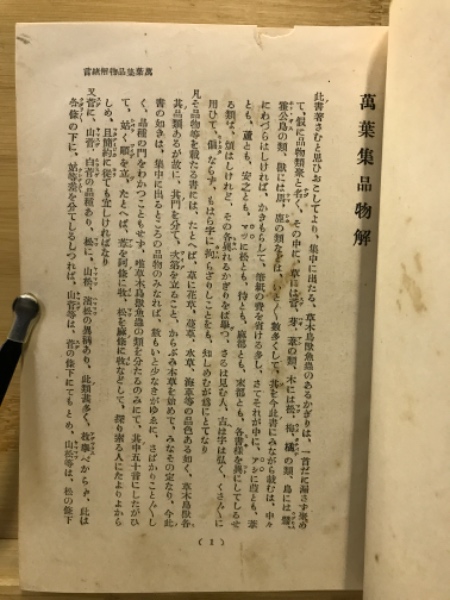 萬葉集品物解
此書著さむと思ひおこしてより、集中に出たる、草木鳥獸魚蟲のあるかぎりは、一首だに漏さす聚め
て、假に品物類聚と名く、その中に、草は
の類、木には松、梅、橘の類、鳥には
の類、獸には馬、鹿の類などは、いと〳〵數多くして、其を今此書にみながら載むは、中々
にわづらはしければ、かきもらして、筆紙の費を省ける多し、さてそれが中に、アシに葭とも、葦
とも、蘆とも、安之とも、マツに松とも、待とも、麻都とも、末都とも、各書樣を異にしてしるせ
る類は、煩はしけれど、その各異れるかぎりをば擧つ、さるは見む人、古は字は弘く、くさ〴〵に
用ひて、偏ならず、もはら字に拘らざりしことをも、知しめむが爲にとてなり
凡そ品物等を載たる書には、たとへば、草に花草、蔓草、水草、海草等の品色ある如く、草木鳥獸各
其品類あるが故に、其門を分て、次第を立ること、からぶみ本草を始めて、みなその定なり、今此
書の如きは、集中に出るところの品物のみなれば、數もいと少なきがゆゑに、さばかりこと〴〵し
く、品種の門をわかつこともせず、唯草木鳥獸魚蟲の類を分たるのみにて、其中五十音にしたがひ
て、姑く順を立、たとへば、葦を阿條に收、松を麻條に收などして、探り索る人にたよりよから
しめ、且簡約に從ても宜しければなり
又菅に、山菅、白菅の品種あり、松に、山松、濱松の異稱あり、此類甚多く、枚擧べからず、此は
各條の下に、姑等差を分てしるしつれば、山菅等は、菅の條下にてもとめ、山松等は、松の條下
萬葉集品物解總言
(1)